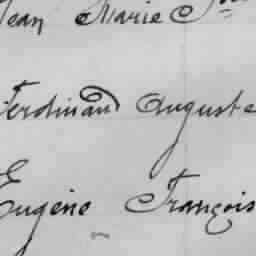 Jean Marie
Ferdinand Auguste
Eugène François